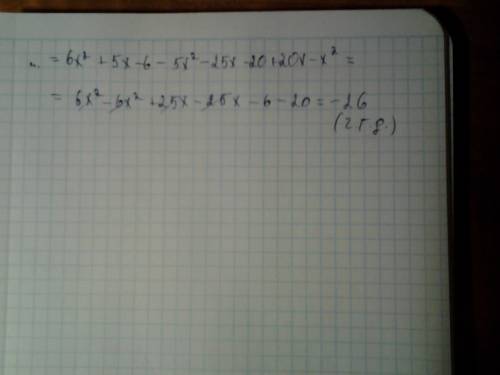 = 6x² + 5x - 6 - 5x² - 25x - 20 + 20x - x² =
= 6x² - 6x² + 25x - 25x - 6 - 20 = -26
(ч.т.д.)